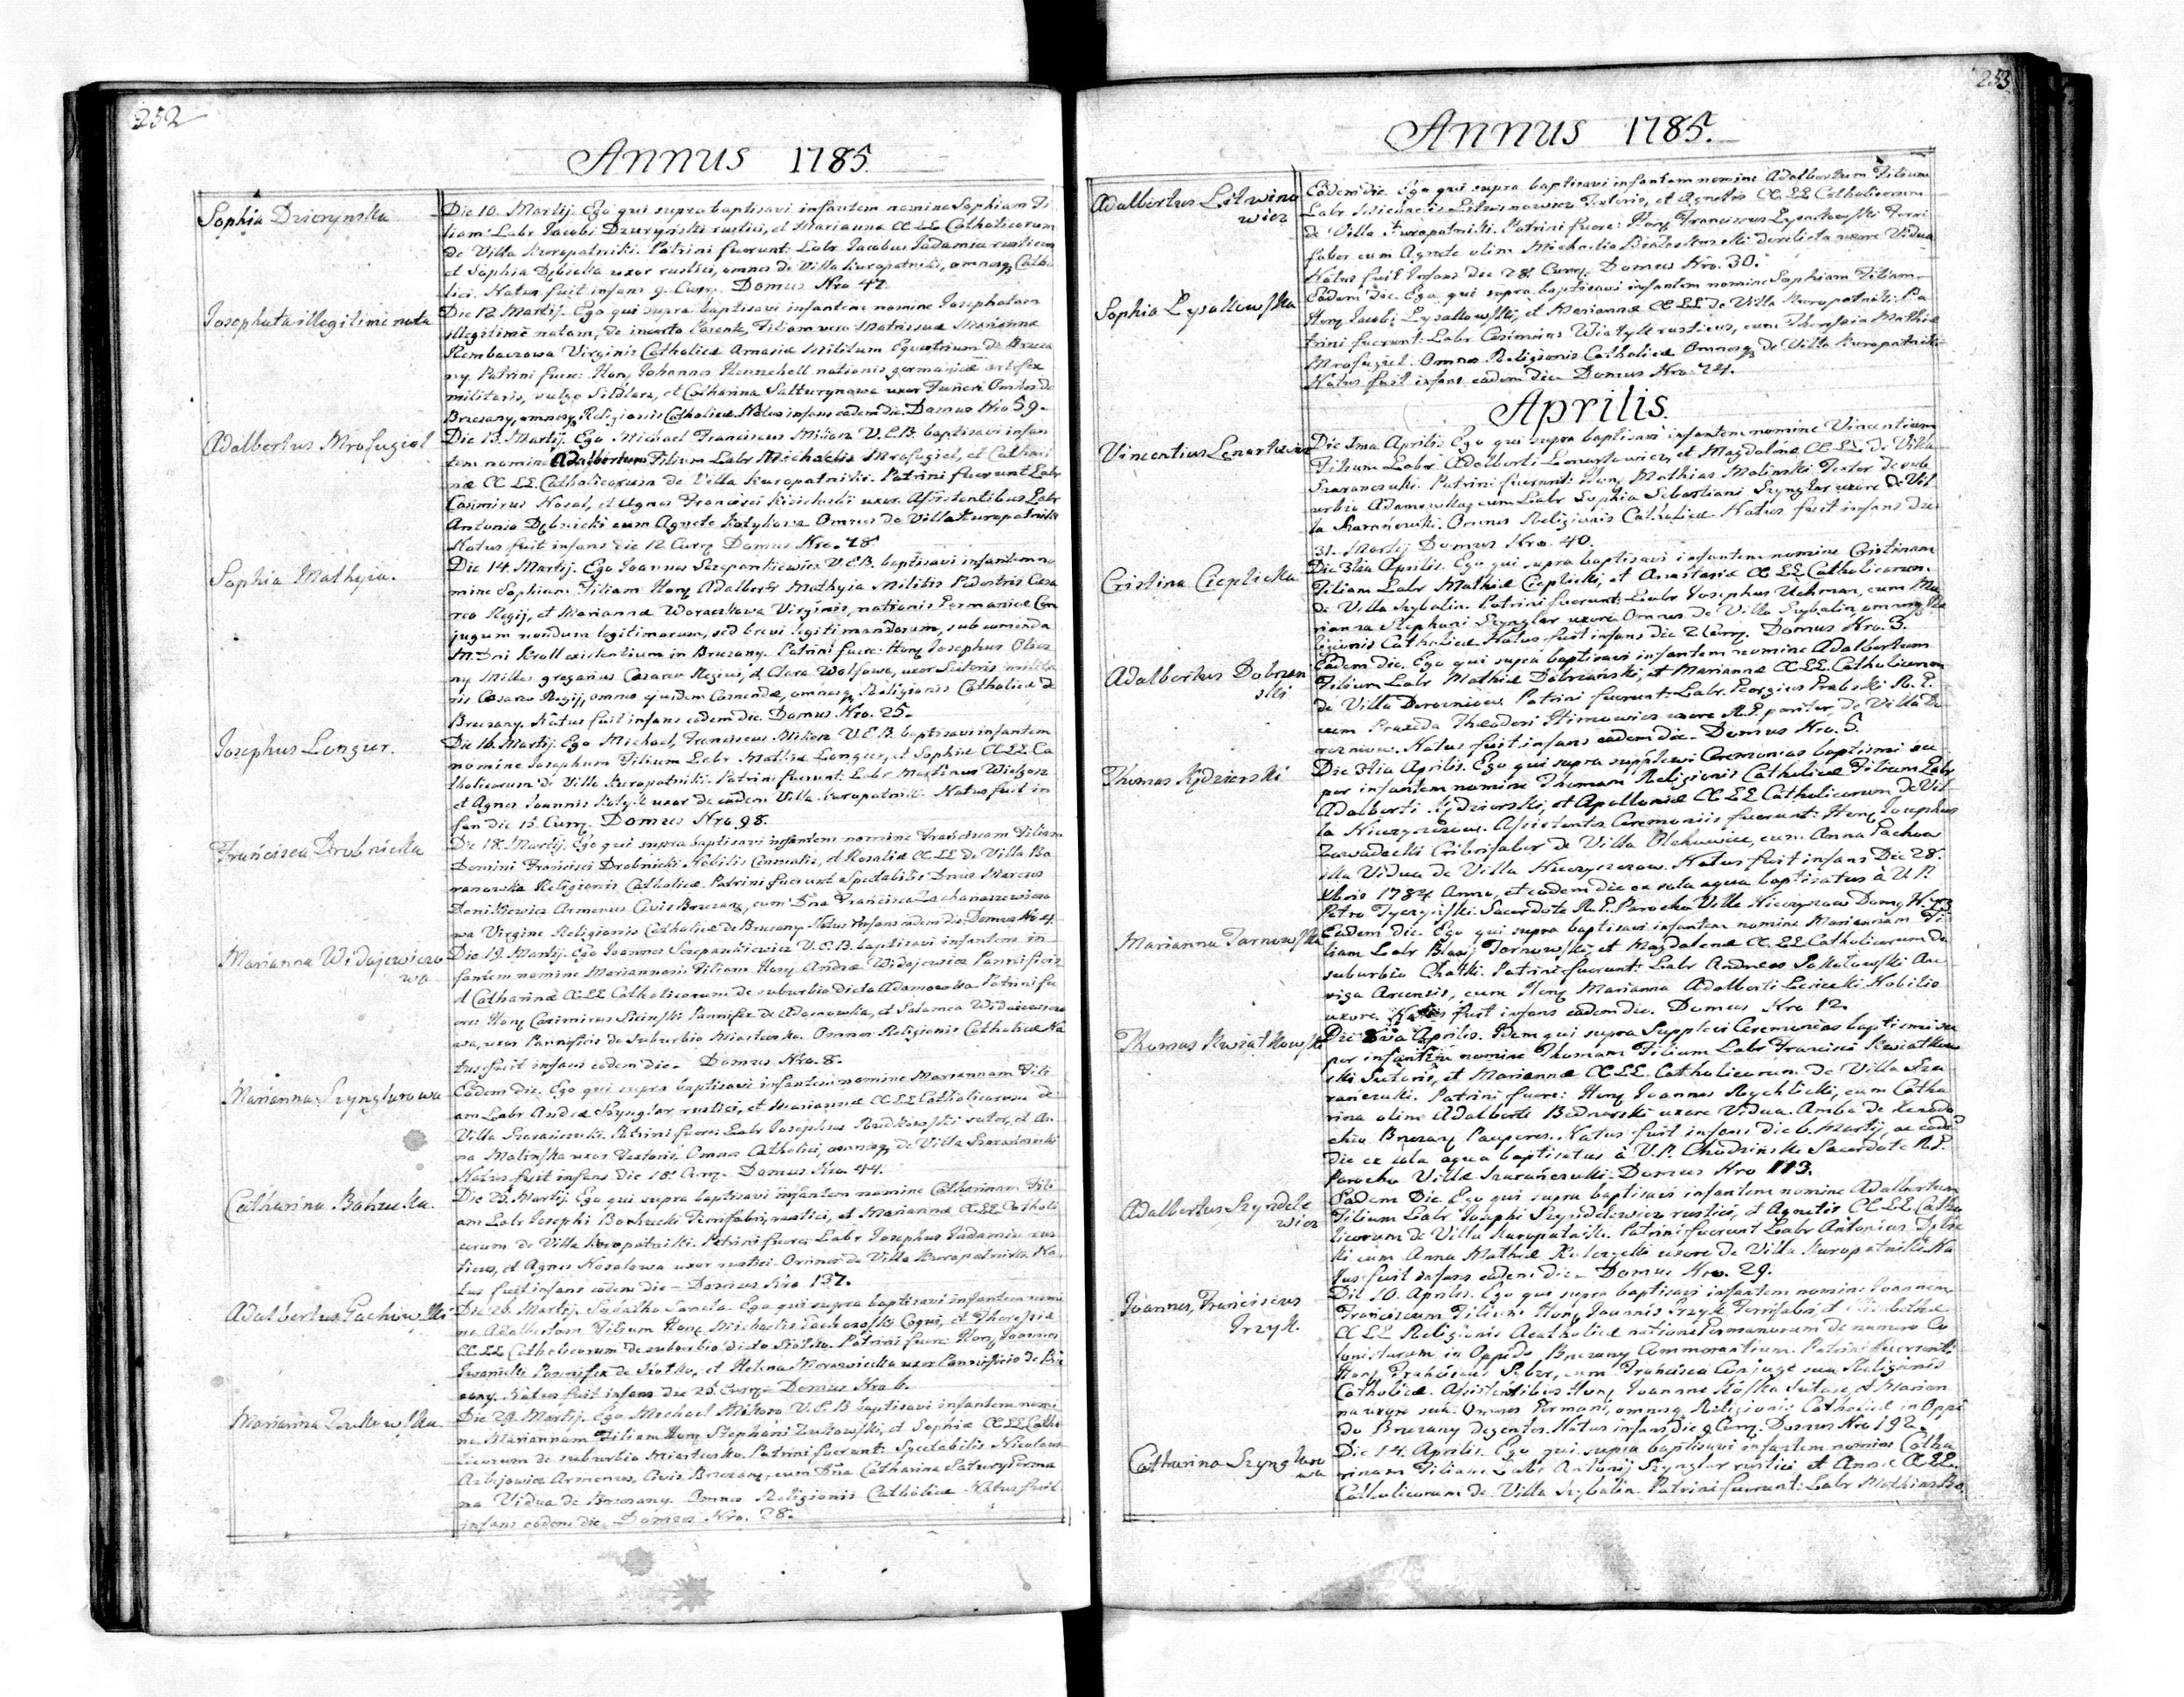 252
Annus 1785.
Sophia Dzierynska
Die 10. Martij. Ego qui supra baptisavi infantem nomine Sophiam Fi-
liam Labr Jacobi Dzuryński rustici, et Marianna CC LL Catholicorum
de Villa Kuropatniki. Patrini fuerunt: Labr Jacobus Jadamiu rusticus
et Sophia uxor rustici, omnes de Villa Kuropatniki, omnesq Catho
lici. Natus fuit infans 9. Curr. Domus Nro 47.
Josephata illegitime nata
Die 12. Martij. Ego qui supra baptisavi infantem nomine Josephatam
illegitimè natam, de incerto Parente, Filiam vero Matris suæ Mariannæ
Rembaczowa Virginis Catholicæ Amasiæ Militum Equestrium de Brzeza
ny. Patrini fuere: Hon Johannes Henschell nationis germanicæ artifex
militaris, vulgo et Catharina uxor Omnes de
Brzezany, omnesq Religionis Catholicæ. Natus infans eadem die. Domus Nro 59.
Adalbertus Mrofugiel
Die 13. Martij. Ego Michael Franciscus Mikosz V.E.B. baptisavi infan
tem nomine Adalbertum Filium Labr Michaelis Mrofugiel, et Cathari
næ CC LL Catholicorum de Villa Kuropatniki. Patrini fuerunt Labr
Casimirus Nosal, et Agnes Francisci uxor. Assistentibus Labr
Antonio Dębnicki cum Agnete Kotykowa Omnes de Villa Kuropatniki
Natus fuit infans die 12 Curr Domus Nro. 78.
Sophia Mathyia.
Die 14. Martij. Ego Joannes Szczepankiewicz V.E.B. baptisavi infantem no
mine Sophiam Filiam Hon Adalberti Mathyia Militis Pedestris Cæsa
reo Regij, et Mariannæ Woraczkowa Virginis, nationis Germanicæ Con
jugum nondum legitimorum, sed brevi legitimandorum, sub comenda
M. Dni Kroll existentium in Brzezany. Patrini fuere: Hon Josephus
ny Miles gregarius Cæsareo Regius, et Clara Wolfowa, uxor Sutoris milita
ris Cæsareo Regij, omnes ejusdem Comendæ, omnesq Religionis Catholicæ de
Brzezany. Natus fuit infans eadem die. Domus Nro. 25.
Josephus Longur.
Die 16. Martij. Ego Michael Franciscus Mikosz V.E.B. baptisavi infantem
nomine Josephum Filium Labr Mathiæ Longur, et Sophiæ CC LL Ca
tholicorum de Villa Kuropatniki. Patrini fuerunt: Labr Martinus Wielgosz
et Agnes Joannis Kotyk uxor de eadem Villa Kuropatniki. Natus fuit in
fans die 15. Curr. Domus Nro 98.
Francisca Drobnicka
Die 18. Martij. Ego qui supra baptisavi infantem nomine Franciscam Filiam
Domini Francisci Drobnicki Nobilis et Rosaliæ CC LL de Villa Ba
ranowka Religionis Catholicæ. Patrini fuerunt Spectabilis Dnus Marcus
Donikiewicz Armenus Civis Brzezany, cum Dna Francisca Zachariaszewiczo
wa Virgine Religionis Catholicæ de Brzezany Natus Infans eadem die. Domus Nro 4.
Marianna Widajewiczo
wa
Die 19. Martij. Ego Joannes Szczepankiewicz V.E.B. baptisavi infantem in
fantem nomine Mariannam Filiam Hon Andreæ Widajewicz Pannificis
et Catharinæ CC LL Catholicorum de suburbio dicto Adamowka. Patrini fu
ere: Hon Casimirus Pannifex de Adamowka, et Salomea Widajewiczo
wa, uxor Pannificis de suburbio Miasteczko. Omnes Religionis Catholicæ Na
tus fuit infans eadem die. Domus Nro. 8.
Marianna Szynglurowa
Eadem die. Ego qui supra baptisavi infantem nomine Mariannam Fili
am Labr Andreæ Szynglar rustici, et Mariannæ CC LL Catholicorum de
Villa Szaranczuki. Patrini fuere: Labr Josephus Rudkowski sutor, et An
na Malinska uxor Textoris, Omnes Catholici, omnesq de Villa Szaranczuki
Natus fuit infans die 18. Curr. Domus Nro. 44.
Catharina Bahrucka.
Die 25. Martij. Ego qui supra baptisavi infantem nomine Catharinam Fili
am Labr Josephi Bahrucki Ferrifabri, rustici, et Mariannæ CC LL Catholi
corum de Villa Kuropatniki. Patrini fuere: Labr Josephus Jadamiu rus
ticus, et Agnes Nosalowa uxor rustici. Omnes de Villa Kuropatniki. Na
tus fuit infans eadem die. Domus Nro 137.
Adalbertus Pachowski
Die 26. Martij. Sabatho Sancto. Ego qui supra baptisavi infantem nomi
ne Adalbertum Filium Hon Michaelis Coqui, et Theressiæ
CC LL Catholicorum de suburbio dicto Patrini fuere: Hon Joannes
Iwanicki Pannifex de et Helena Morawiecka uxor Pannificis de Brze
zany. Natus fuit infans die 25. Curr. Domus Nro 6.
Marianna Zukowska
Die 29. Martij. Ego Michael Mikosz V.E.B. baptisavi infantem nomi
ne Mariannam Filiam Hon Stephani Zukowski, et Sophiæ CC LL Catho
licorum de suburbio Miasteczko. Patrini fuerunt: Spectabilis Nicolaus
Armenus, Civis Brzezany, cum Dna Catharina
na Vidua de Brzezany. Omnes Religionis Catholicæ Natus fuit
infans eadem die. Domus Nro. 28.
253
Annus 1785.
Adalbertus Litwino
wicz
Eadem die. Ego qui supra baptisavi infantem nomine Adalbertum Filium
Labr Michaelis Litwinowicz Textoris, et Agnetis CC LL Catholicorum
de Villa Kuropatniki. Patrini fuere: Hon Franciscus Lysakowski Ferri
faber cum Agnete olim Michaelis derelicta uxore Vidua
Natus fuit Infans die 28. Curr. Domus Nro. 30.
Sophia Lysakowska
Eadem die. Ego qui supra baptisavi infantem nomine Sophiam Filiam
Hon Jacobi Lysakowski, et Mariannæ CC LL de Villa Kuropatniki. Pa
trini fuerunt: Labr Casimirus Wiatyk rusticus, cum Theressia Mathiæ
Mrofugiel. Omnes Religionis Catholicæ Omnesq de Villa Kuropatniki.
Natus fuit infans eadem die. Domus Nro. 24.
Aprilis.
Vincentius Lenartowicz
Die 1ma Aprilis Ego qui supra baptisavi infantem nomine Vincentium
Filium Labr Adalberti Lenartowicz, et Magdalenæ CC LL de Villa
Szaranczuki. Patrini fuerunt: Hon Mathias Malinski Textor de sub
urbio Adamowka, cum Labr Sophia Sebastiani Szynglar uxore de Vil
la Szaranczuki. Omnes Religionis Catholicæ. Natus fuit infans die
31. Martij Domus Nro. 40.
Cristina Cieplicka
Die 3tia Aprilis. Ego qui supra baptisavi infantem nomine Cristinam
Filiam Labr Mathiæ Cieplicki, et Anastasiæ CC LL Catholicorum
de Villa Szybalin. Patrini fuerunt: Labr Josephus Uchman, cum Ma
rianna Stephani Szynglar uxore Omnes de Villa Szybalin, omnesq Re
ligionis Catholicæ. Natus fuit infans die 2 Curr. Domus Nro. 3.
Adalbertus Dobrzan
ski
Eadem die. Ego qui supra baptisavi infantem nomine Adalbertum
Filium Labr Mathiæ Dobrzanski, et Mariannæ CC LL Catholicorum
de Villa Patrini fuerunt: Labr. Georgius R.G.
cum Praxeda Theodori uxore R.G. pariter, de Villa Do
Natus fuit infans eadem die. Domus Nro. 5.
Thomas Kędzierski
Die 3tia Aprilis. Ego qui supra supplevi Ceremonias baptismi su
per infantem nomine Thomam Religionis Catholicæ Filium Labr
Adalberti Kędzierski, et Apolloniæ CC LL Catholicorum de Vil
la Assistentes Ceremoniis fuerunt: Hon Josephus
Zawadecki Cribrifaber de Villa Olchowiec, cum Anna Pachow
ska Vidua de Villa Natus fuit infans Die 28.
Xbris 1784 Anno, et eadem die ex sola aqua baptisatus à V. P.
Petro Sacerdote R.G. Parocho Villæ
Marianna Tarnowska
Eadem die. Ego qui supra baptisavi infantem nomine Mariannam Fi
liam Labr Blasij Tarnowski et Magdalenæ CC LL Catholicorum de
suburbio Chatki. Patrini fuerunt: Labr Andreas Sokołowski Au
riga Arcensis, cum Hon Marianna Adalberti Nobilis
uxore. Natus fuit infans eadem die. Domus Nro 12.
Thomas Kwiatkowski
Aprilis. Idem qui supra Supplevi Ceremonias baptismi su
per infantem nomine Thomam Filium Labr Francisci Kwiatkow
ski Sutoris, et Mariannæ CC LL Catholicorum de Villa Sza
ranczuki. Patrini fuere: Hon Joannes Rychlicki, cum Catha
rina olim Adalberti Bednarski uxore Vidua. Ambo de Xenodo
chio Brzezany Pauperes. Natus fuit infans die 6. Martij, ac eadem
die ex sola aqua baptisatus à V. P. Chodzinski Sacerdote R.G.
Parocho Villæ Szaranczuki. Domus Nro 113.
Adalbertus Szyndele
wicz
Eadem Die. Ego qui supra baptisavi infantem nomine Adalbertum
Filium Labr Josephi Szyndelewicz rustici, et Agnetis CC LL Catho
licorum de Villa Kuropatniki. Patrini fuerunt Labr Antonius Dębni
cki cum Anna Mathiæ uxore de Villa Kuropatniki. Na
tus fuit infans eadem die. Domus Nro. 29.
Joannes, Franciscus
Irzyk.
Die 10. Aprilis. Ego qui supra baptisavi infantem nomine Joannem
Franciscum Filium Hon Joannis Irzyk Ferrifabri, et Elisabethæ
CC LL Religionis Acatholicæ natione Germanorum de numero Co
lonistarum in Oppido Brzezany Commorantium. Patrini fuerunt:
Hon Franciscus Seber, cum Francisca Conjuge sua Religionis
Catholicæ. Assistentibus Hon Joanne sutore, et Marian
na uxore sua. Omnes Germani, omnesq Religionis Catholicæ in Oppi
do Brzezany degentes. Natus infans die 9 Curr. Domus Nro 192.
Catharina Szynglaro
wa
Die 14. Aprilis. Ego qui supra baptisavi infantem nomine Catha
rinam Filiam Labr Antonij Szynglar rustici et Annæ CC LL
Catholicorum de Villa Szybalin. Patrini fuerunt: Labr